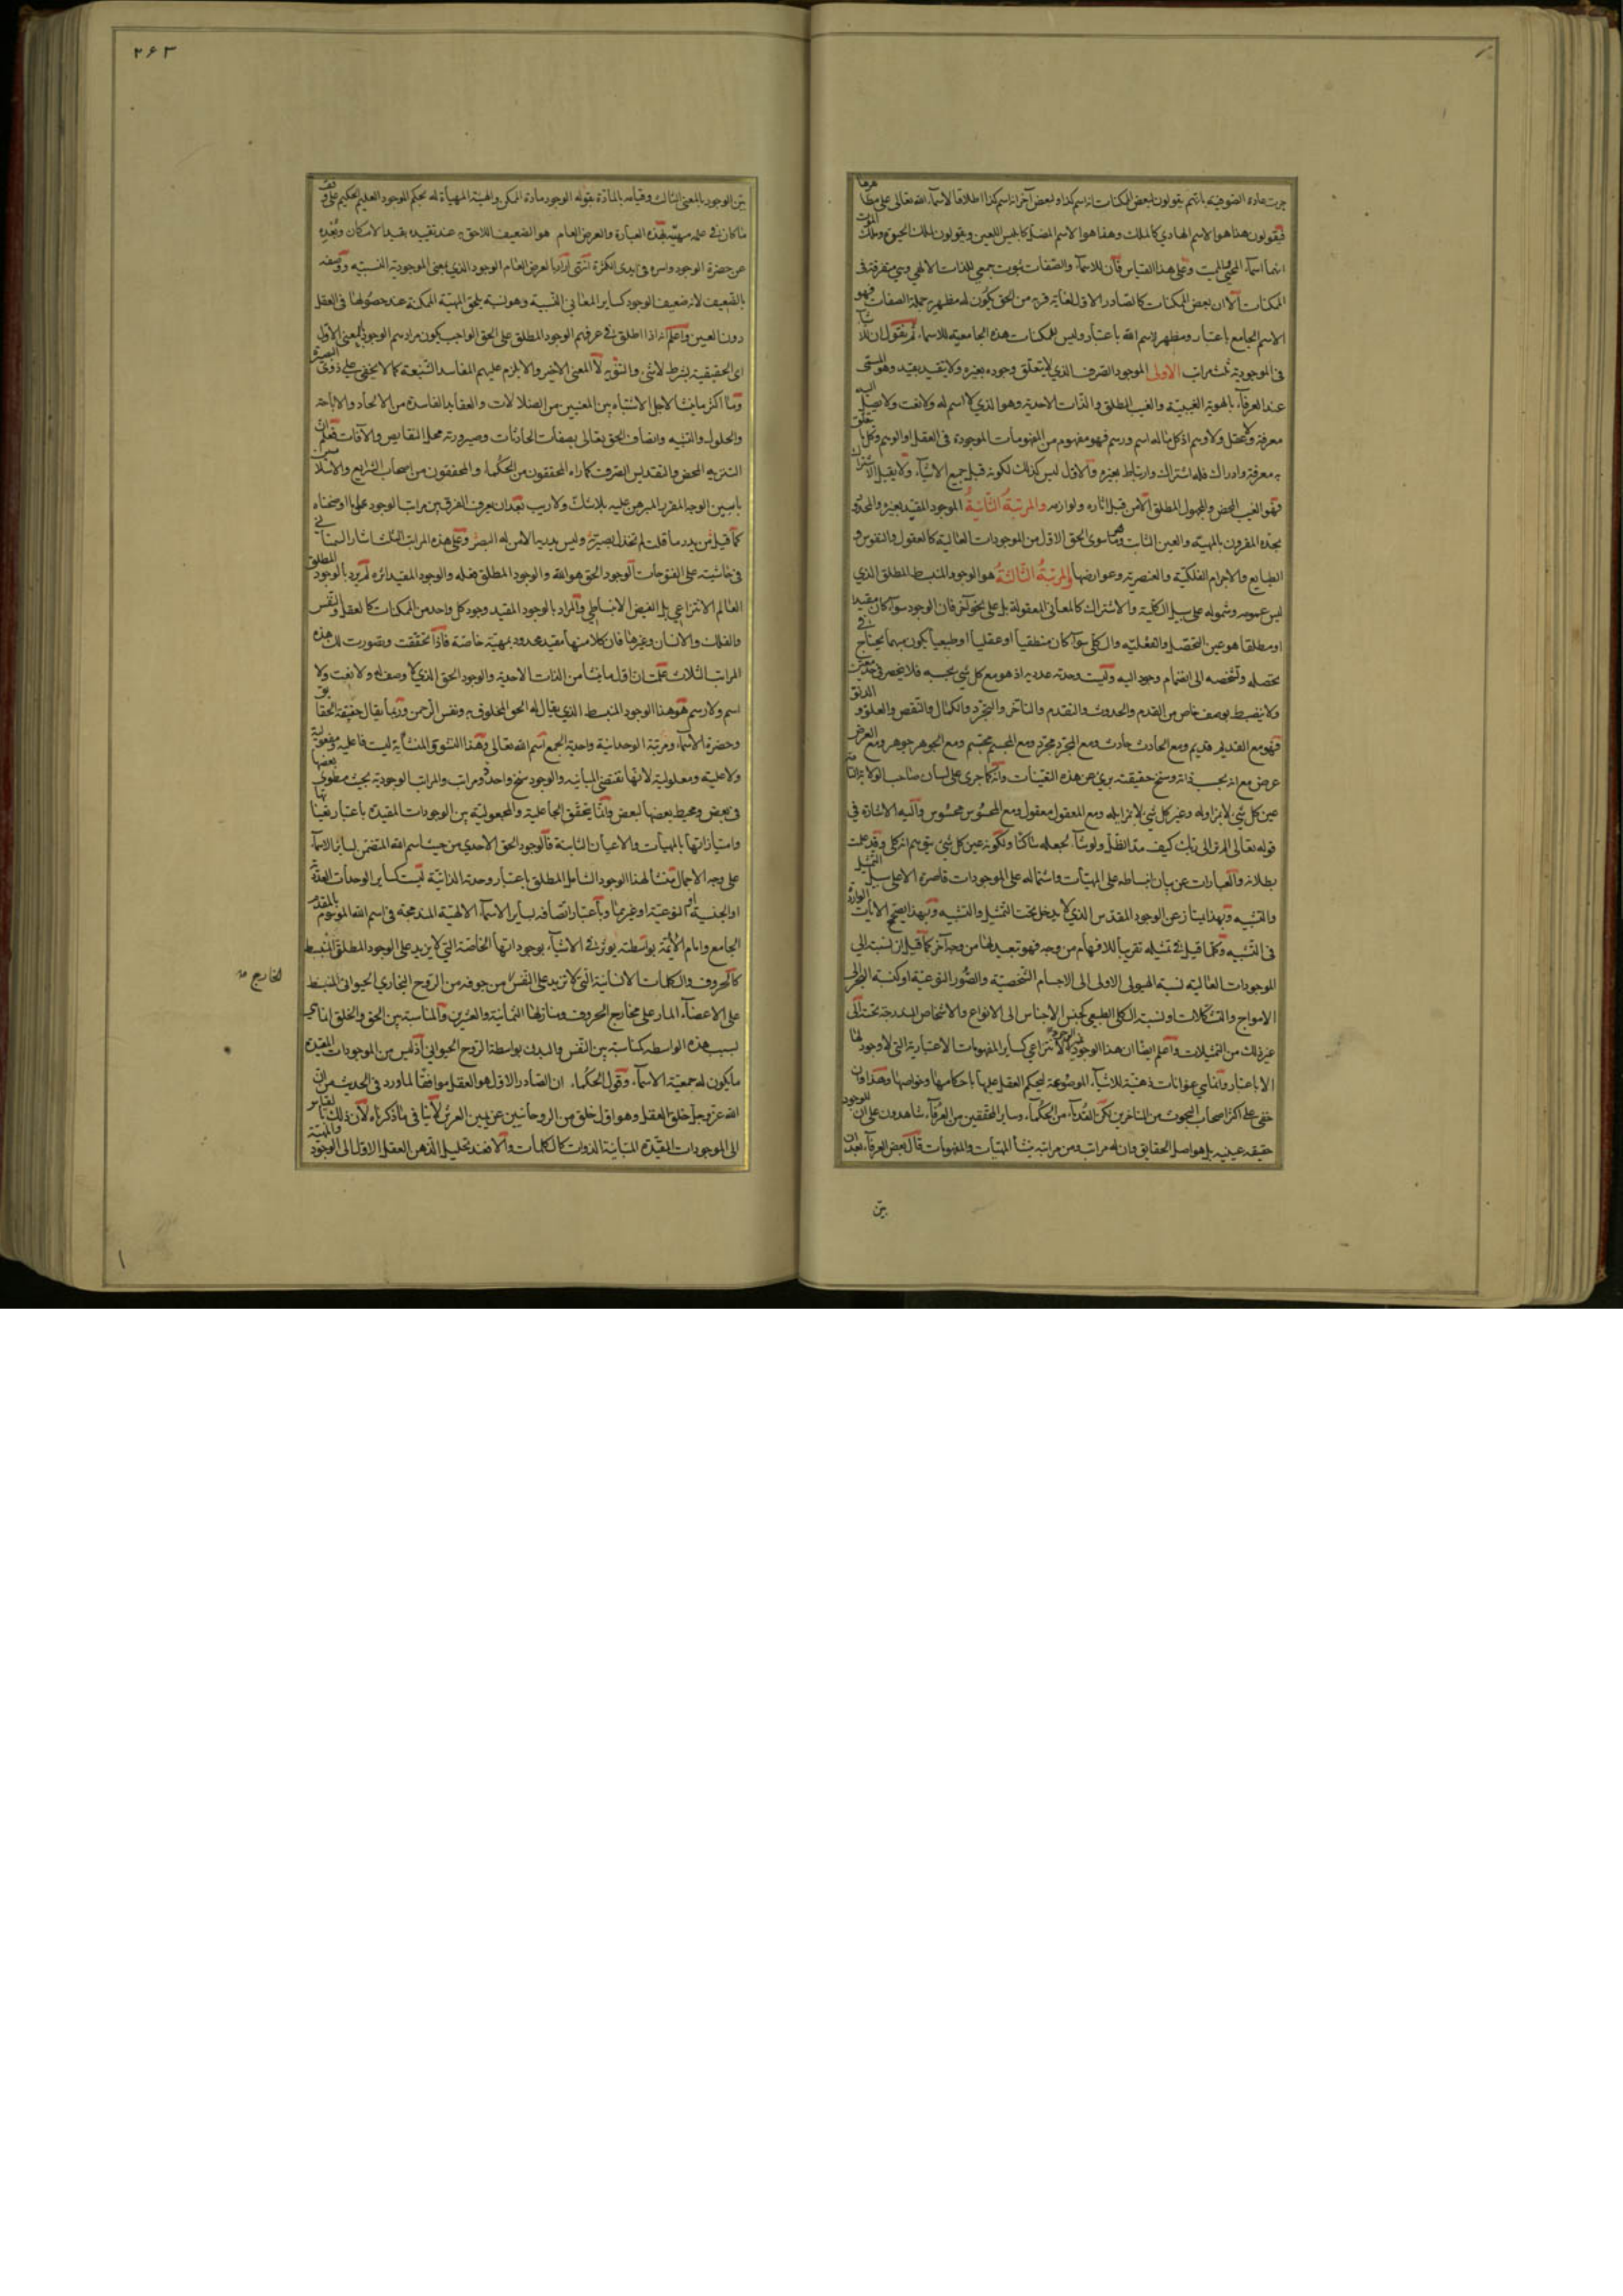 جرت عادة الصوفية بانهم يقولون لبعض الممكنات انه اسم كذا ولبعض آخر انه اسم كذا اطلاقا لاسماء الله تعالى على مظاهرها
فيقولون هذا هو الاسم الهادي كالملك وهذا هو الاسم المضل كابليس اللعين ويقولون لملك الحيوة وملك الموت
انهما اسماء المحيي والمميت وعلى هذا القياس فان للاسماء والصفات ثبوت جمعي للذات الالهي وهي متفرقة في
الممكنات الا ان بعض الممكنات كالصادر الاول لغاية قربه من الحق يكون له مظهرية جملة الصفات فهو
الاسم الجامع باعتبار ومظهر لاسم الله باعتبار وليس للممكنات هذه الجامعية للاسماء ثم يقول ان للاشياء
في الموجودية ثلث مراتب الاولى الموجود الصرف الذي لا يتعلق وجوده بغيره ولا يتقيد بقيد وهو المسمى
عند العرفاء بالهوية الغيبية والغيب المطلق والذات الاحدية وهو الذي لا اسم له ولا نعت ولا يصل اليه
معرفة ولا عقل ولا وهم اذ كل ما له اسم ورسم فهو مفهوم من المفهومات الموجودة في العقل او الوهم وكل ما يتعلق
به معرفة وادراك فله اشتراك وارتباط بغيره والاول ليس كذلك لكونه قبل جميع الاشياء ولا يقبل الاشتراك
فهو الغيب المحض والمجهول المطلق الا من قبل آثاره ولوازمه والمرتبة الثانية الموجود المقيد بغيره والمحدود
بحده المقرون بالمهية والعين الثابت وهو ما سوى الحق الاول من الموجودات العالية كالعقول والنفوس و
الطبايع والاجرام الفلكية والعنصرية وعوارضها والمرتبة الثالثة هو الوجود المنبسط المطلق الذي
ليس عمومه وشموله على سبيل الكلية والاشتراك كالمعاني المعقولة بل على نحو آخر فان الوجود سواء كان مقيدا
او مطلقا هو عين التحصل والفعلية والكلي سواء كان منطقيا او عقليا او طبيعيا يكون مبهما يحتاج في
تحصله وتشخصه الى انضمام وجود اليه وليست وحدته عددية اذ هو مع كل شي بحسبه فلا ينحصر في حد معين
ولا ينضبط بوصف خاص من القدم والحدوث والتقدم والتاخر والتجرد والكمال والنقص والعلو والدنو
فهو مع القديم قديم ومع الحادث حادث ومع المجرد مجرد ومع المجسم مجسم ومع الجوهر جوهر ومع العرض
عرض مع انه بحسب ذاته وسنخ حقيقته بري عن هذه التعينات وانه كما جرى على لسان صاحب الولاية التامة
عين كل شي لا بمزاولة وغير كل شي لا بمزايلة ومع المعقول معقول ومع المحسوس محسوس واليه الاشارة في
قوله تعالى الم تر الى ربك كيف مد الظل ولو شاء لجعله ساكنا ولكونه عين كل شي يتوهم انه كلي وقد علمت
بطلانه والعبارات عن بيان انبساطه على المهيات واشتماله على الموجودات قاصرة الا على سبيل التمثيل
والتشبيه وبهذا يمتاز عن الوجود المقدس الذي لا يدخل تحت التمثيل والتشبيه وبهذا يصح الآيات الواردة
في التشبيه وكلما قيل في تمثيله تقريبا للافهام من وجه فهو تبعيد لها من وجه آخر كما قيل ان نسبته الى
الموجودات العالية نسبة الهيولى الاولى الى الاجسام الشخصية والصور النوعية او كنسبة البحر الى
الامواج والتشكلات او نسبة الكلي الطبيعي كجنس الاجناس الى الانواع والاشخاص المندرجة تحته الى
غير ذلك من التمثيلات واعلم ايضا ان هذا الوجود غير الوجود الانتزاعي كساير المفهومات الاعتبارية التي لا وجود لها
الا باعتبار وانما هي عنوانات ذهنية للاشياء الموضوعة ليحكم العقل عليها باحكامها وخواصها وهذا وان
خفي على اكثر اصحاب البحوث من المتاخرين لكن القدماء من الحكماء وساير المحققين من العرفاء شاهدون على ان للوجود
حقيقة عينية بل هو اصل الحقايق وان له مراتب ومن مراتبه ينشأ المهيات والمفهومات قال بعض العرفاء بعد ان
بين
٢۶٣
بين الوجود بالمعنى الثالث وقياسه بالمادة بقوله الوجود مادة الممكن والهيئة المهيأة له بحكم الموجد العليم الحكيم على وفق
ما كان في علمه مهيئة بهذه العبارة والعرض العام هو الضعيف اللاحق به عند تقييده بقيد الامكان وبعده
عن حضرة الوجود واسره في ايدي الكثرة انتهى اراد بالعرض العام الوجود الذي بمعنى الموجودية النسبية ووصفه
بالضعيف لانه ضعيف الوجود كساير المعاني النسبية وهو نسبة يلحق المهية الممكنة عند حصولها في العقل
دون العين واعلم انه اذا اطلق في عرفهم الوجود المطلق على الحق الواجب يكون مرادهم الوجود بالمعنى الاول
اي الحقيقية بشرط لا شي والتنزيه لا المعنى الاخير والا يلزم عليهم المفاسد الشنيعة كما لا يخفى على ذوي البصيرة
وما اكثر ما ينشأ لاجل الاشتباه بين المعنيين من الضلالات والعقايد الفاسدة من الالحاد والاباحة
والحلول والتشبيه واتصاف الحق تعالى بصفات الحادثات وصيرورته محل النقايص والآفات فعلم ان
التنزيه المحض والتقديس الصرف كما رآه المحققون من الحكماء والمحققون من اصحاب الشرايع والاسلاميين
باسبين الوجه المقرر المبرهن عليه بلا شك ولا ريب بعد ان يعرف الفرق بين مراتب الوجود على ما اوضحناه
كما قيل من يدر ما قلت لم تخذل بصيرته وليس يدريه الا من له البصر وعلى هذه المراتب الثلث اشار السمناني
في حاشيته على الفتوحات الوجود الحق هو الله والوجود المطلق فعله والوجود المقيد اثره لم يرد بالوجود المطلق
العام الانتزاعي بل الفيض الانبساطي والمراد بالوجود المقيد وجود كل واحد من الممكنات كالعقل والنفس
والفلك والانسان وغيرها فان كلا منها مقيد محدود بمهية خاصة فاذا تحققت وتصورت لك هذه
المراتب الثلاث علمت ان اول ما ينشأ من الذات الاحدية والوجود الحق الذي لا وصف له ولا نعت ولا
اسم ولا رسم هو هذا الوجود المنبسط الذي يقال له الحق المخلوق به ونفس الرحمن وربما يقال حقيقة الحقايق
وحضرة الاسماء ومرتبة الوحدانية واحدية الجمع اسم الله تعالى وهذا النشو والمنشأية ليست فاعلية ومفعولية
ولا علية ومعلولية لانها تقتضي المباينة والوجود سنخ واحد ذو مراتب والمراتب الوجودية بحيث مطوي بعضها
في بعض ومحيط بعضها لبعض وانما يتحقق الجاعلية والمجعولية بين الوجودات المقيدة باعتبار تعيناتها
وامتيازاتها بالمهيات والاعيان الثابتة فالوجود الحق الاحدي من حيث اسم الله المتضمن لساير الاسماء
على وجه الاجمال منشأ لهذا الوجود الشامل المطلق باعتبار وحدته الذاتية ليست كساير الوحدات العددية
او الجنسية او النوعية او غيرها وباعتبار اتصافه بساير الاسماء الالهية المندمجة في اسم الله الموسوم بالمقدم
الجامع وامام الائمة بواسطته يؤثر في الاشياء بوجوداتها الخاصة التي لا يزيد على الوجود المطلق المنبسط
كالحروف والكلمات الانسانية التي لا تزيد على النفس من جوفه من الروح البخاري الحيواني المنبسط
الخارج صح
على الاعضاء المار على مخارج الحروف ومنازلها الثمانية والعشرين والمناسبة بين الحق والخلق انما هي
بسبب هذه الواسطة كمناسبته بين النفس والبدن بواسطة الروح الحيواني اذ ليس من الموجودات المقيدة
ما يكون له جمعية الاسماء وقول الحكماء ان الصادر الاول هو العقل موافقا لما ورد في الحديث من ان
الله عز وجل خلق العقل وهو اول خلق من الروحانيين عن يمين العرش لا ينافي ما ذكرناه لان ذلك بالقياس
الى الموجودات المقيدة المتباينة الذوات كالكلمات والا فعند تحليل الذهن العقل الاول الى الوجود والمهية